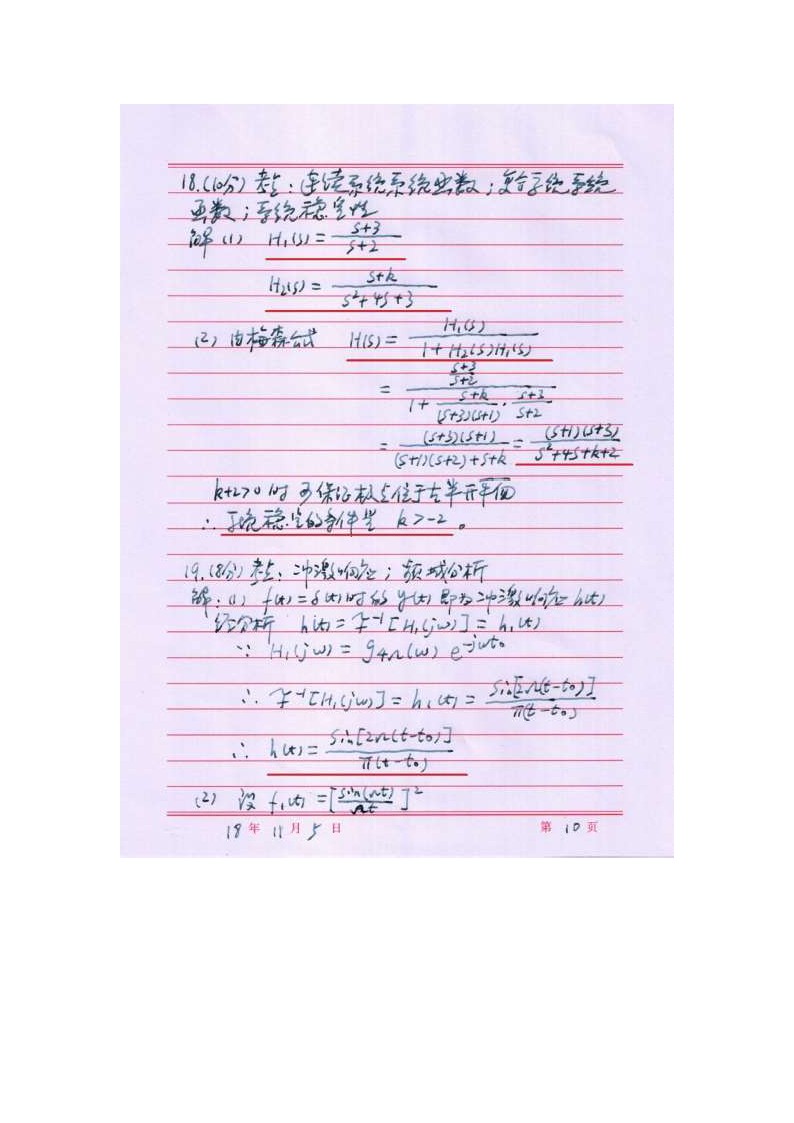 18.(10分) 考点：连续系统系统函数；复合系统系统
函数；系统稳定性
解 (1) H₁(s) = (s+3)/(s+2)
H₂(s) = (s+k)/(s²+4s+3)
(2) 由梅森公式 H(s) = H₁(s)/(1+H₂(s)H₁(s))
= ((s+3)/(s+2))/(1+(s+k)/((s+3)(s+1))·(s+3)/(s+2))
= (s+3)(s+1)/((s+1)(s+2)+s+k) = (s+1)(s+3)/(s²+4s+k+2)
k+2>0 时 可保证极点位于左半开平面
∴ 系统稳定的条件是 k>-2 。
19.(8分) 考点：冲激响应；频域分析
解：(1) f(t)=δ(t)时的 y(t) 即为冲激响应 h(t)
经分析 h(t) = F⁻¹[H₁(jω)] = h₁(t)
∵ H₁(jω) = g₄Ω(ω) e^(-jωt₀)
∴ F⁻¹[H₁(jω)] = h₁(t) = sin[2Ω(t-t₀)]/π(t-t₀)
∴ h(t) = sin[2Ω(t-t₀)]/π(t-t₀)
(2) 设 f₁(t) = [sin(Ωt)/Ωt]²
18 年 11 月 5 日 第 10 页